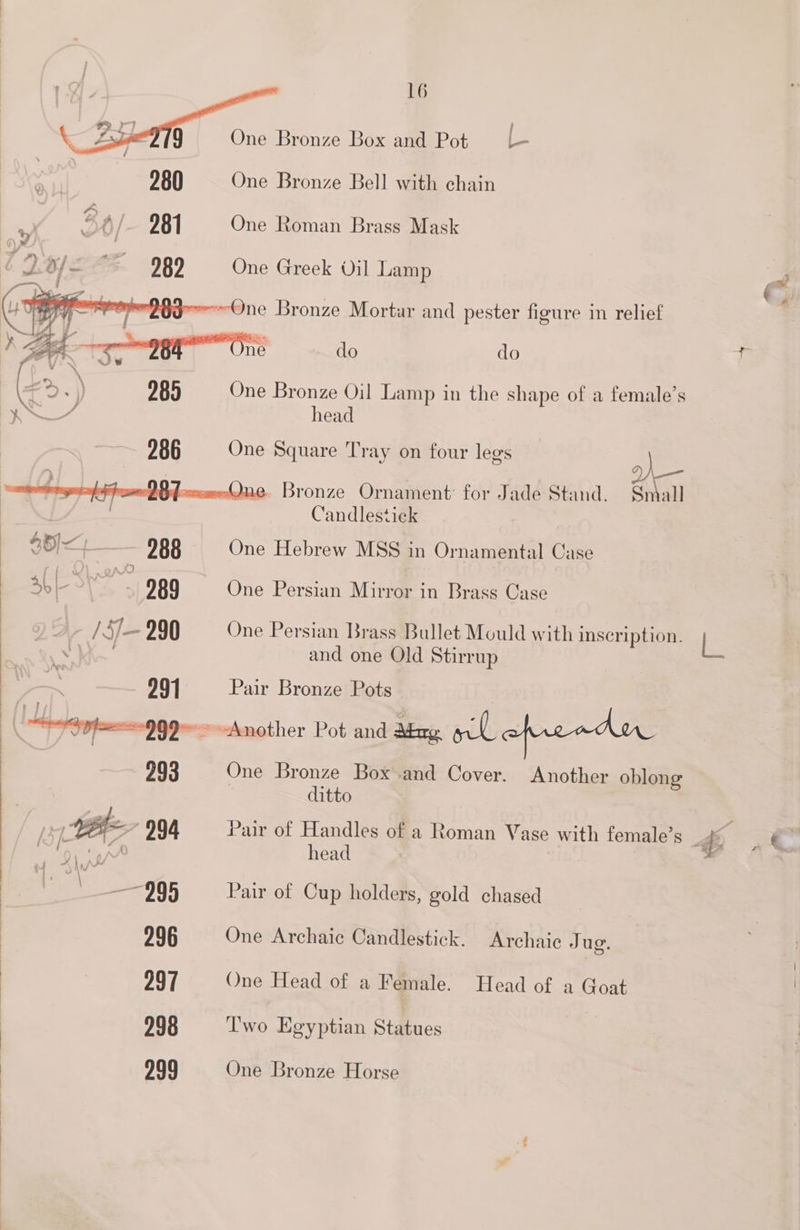 16
279 One Bronze Box and Pot
280 One Bronze Bell with chain
281 One Roman Brass Mask
282 One Greek Oil Lamp
283 One Bronze Mortar and pester figure in relief
284 One do do
285 One Bronze Oil Lamp in the shape of a female's
head
286 One Square Tray on four legs
287 One Bronze Ornament for Jade Stand. Small
Candlestick
288 One Hebrew MSS in Ornamental Case
36/- 289 One Persian Mirror in Brass Case
15/- 290 One Persian Brass Bullet Mould with inscription.
and one Old Stirrup
291 Pair Bronze Pots
292 Another Pot and oil spreader
293 One Bronze Box and Cover. Another oblong
ditto
294 Pair of Handles of a Roman Vase with female's
head
295 Pair of Cup holders, gold chased
296 One Archaic Candlestick. Archaic Jug.
297 One Head of a Female. Head of a Goat
298 Two Egyptian Statues
299 One Bronze Horse